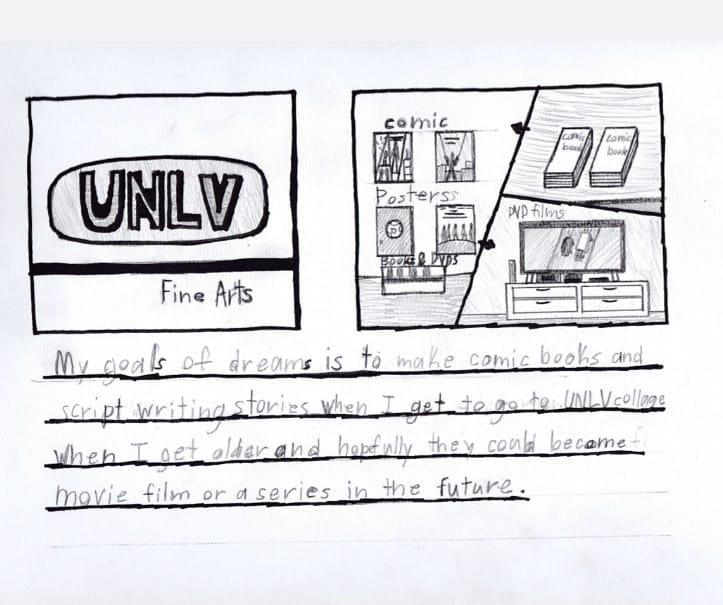 UNLV
Fine Arts
comic
Posterss
Books & DVDS
comic
book
comic
book
DVD films
My goals of dreams is to make comic books and
script writing stories when I get to go to UNLV collage
when I get older and hopfully they could become
movie film or a series in the future.